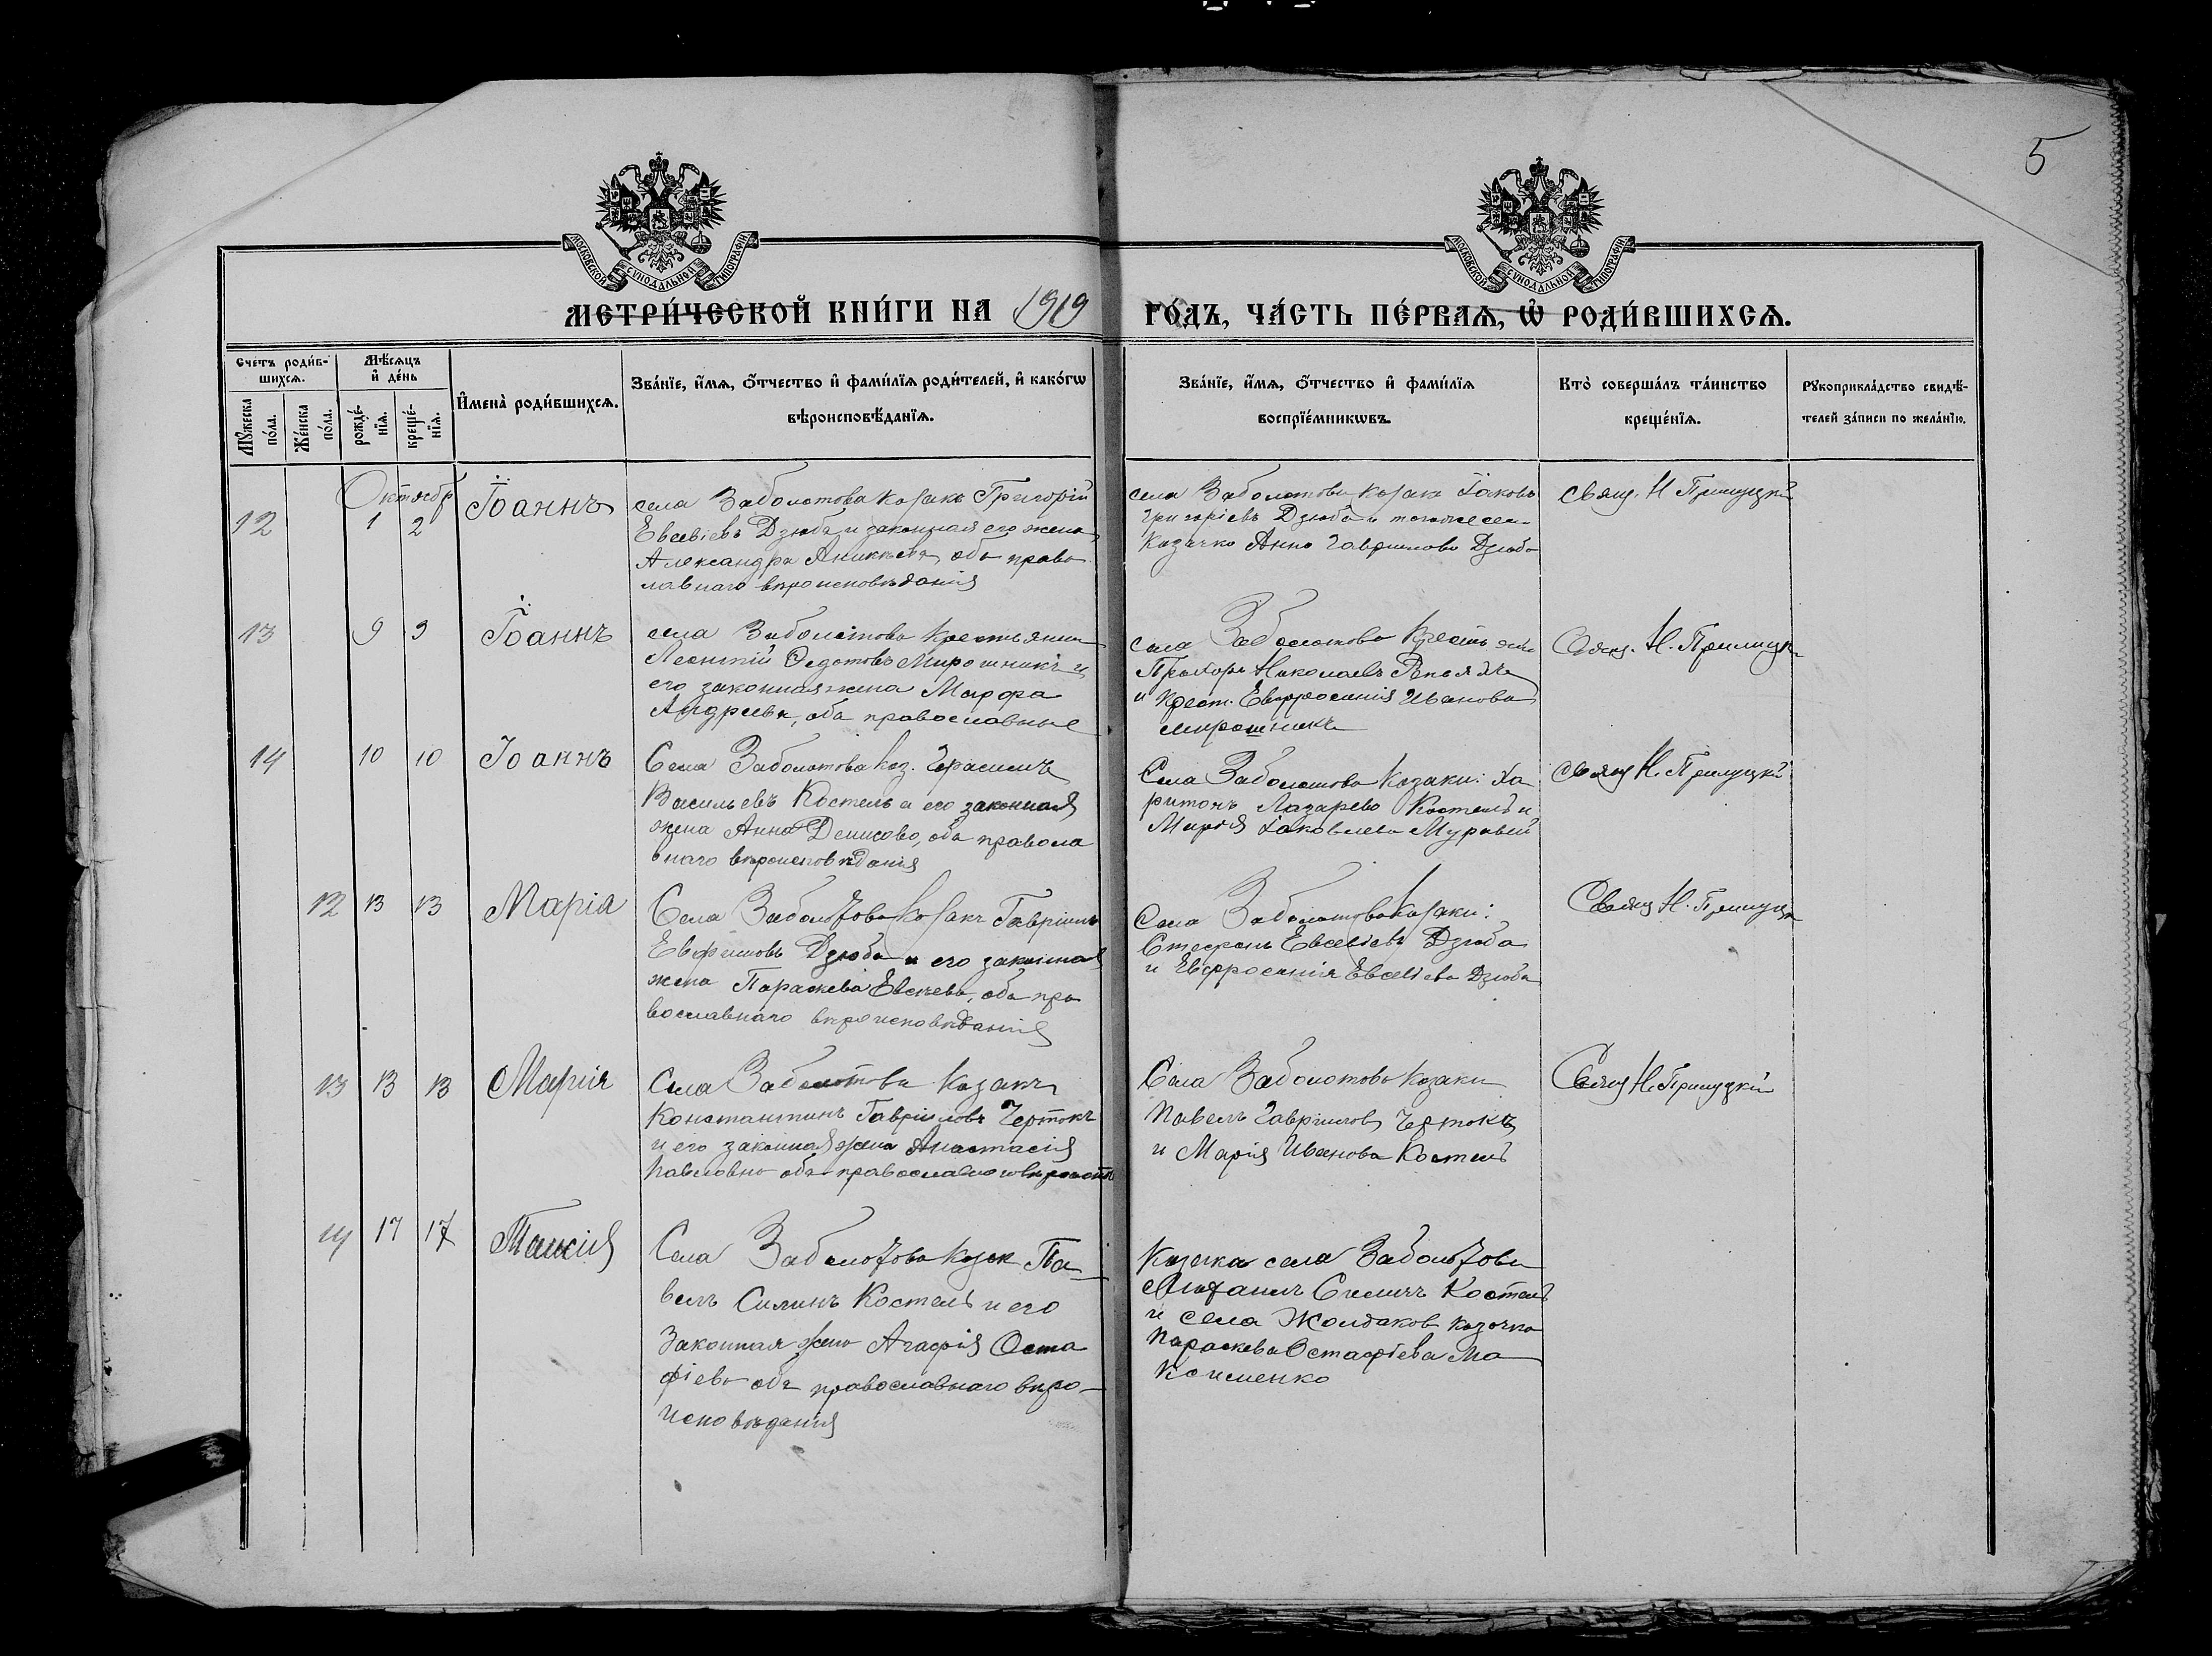 5
МОСКОВСКОЙ СѴНОДАЛЬНОЙ ТИПОГРАФІИ
МОСКОВСКОЙ СѴНОДАЛЬНОЙ ТИПОГРАФІИ
МЕТРИ́ЧЕСКОЙ КНИ́ГИ НА 1919 ГО́ДЪ, ЧА́СТЬ ПЕ́РВАѦ, Ѡ҆ РОДИ́ВШИХСѦ.
Сче́тъ роди́в-
шихсѧ.
Мѣ́сѧцъ
и҆ де́нь
Мꙋ́жеска
по́ла.
Же́нска
по́ла.
рожде́-
нїѧ.
креще́-
нїѧ.
И҆мена̀ роди́вшихсѧ.
Зва́нїе, и҆́мѧ, ѻ҆́тчество и҆ фами́лїѧ роди́телей, и҆ како́гѡ
вѣроисповѣ́данїѧ.
Зва́нїе, и҆́мѧ, ѻ҆́тчество и҆ фами́лїѧ
воспрїе́мникѡвъ.
Кто̀ соверша́лъ та́инство
креще́нїѧ.
Рꙋкоприкла́дство свидѣ́-
телей за́писи по жела́нїю.
Октябр
12 1 2
Іоаннъ
села Заболотова козакъ Григорій
Евсевіевъ Дзюба и законная его жена
Александра оба право
славнаго вѣроисповѣданія
села Заболотова козакъ Іаковъ
Григоріевъ Дзюба и тогоже села
Козачка Анна Гаврилова Дзюба
Свящ. Н Прилуцкій
13 9 9
Іоаннъ
села Заболотова крестьянинъ
Леонтій Федотовъ Мирошникъ и
его законная жена Марфа
Андреева, оба православные
села Заболотова
Николаевъ
и Крест. Евфросинія Иванова
Мирошникъ
Свящ. Н. Прилуцк
14 10 10
Іоаннъ
Села Заболотова Коз. Герасимъ
Васильевъ Костель и его законная
жена Анна Денисова, оба правосла
внаго вѣроисповѣданія
Села Заболотова Козаки: Ха
ритонъ Лазарева Костель и
Марія Іаковлева Муравей
Свящ Н. Прилуцкій
12 13 13
Марія
Села Заболотова Козакъ Гавріилъ
Евфимовъ Дзюба и его законная
жена Параскева оба пра
вославнаго вѣроисповѣданія
Села Заболотова Козаки:
Стефанъ Евсевіевъ Дзюба
и Евфросинія Евсевіева Дзюба
Свящ Н. Прилуцк
13 13 13
Марія
Села Заболотова Козакъ
Константинъ Гавріиловъ Чертокъ
и его законная жена Анастасія
Павловна оба
Села Заболотова Козаки
Павелъ Гавріиловъ Чертокъ
и Марія Иванова Костель
Свящ Н. Прилуцкій
14 17 17
Таисія
Села Заболотова Козак Па-
велъ Силинъ Костель и его
Законная жена Агафія Оста
фіева оба православнаго вѣро-
исповѣданія
села Заболотова
Силинъ Костель
и села Жолдаков козачка
Параскева Остафіева Ма
ксименко